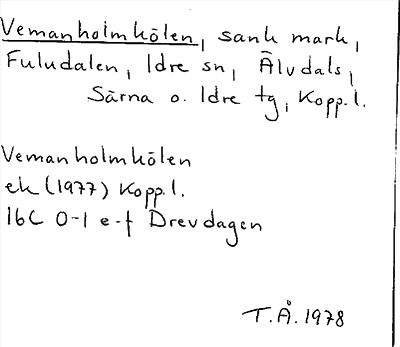 Vemanholmhölen, sank mark,
Fuludalen, Idre sn, Älvdals,
Särna o. Idre tg, Kopp.l.
Vemanholmhölen
ek (1977) Kopp.l.
16C 0-1 e-f Drevdagen
T.Å. 1978